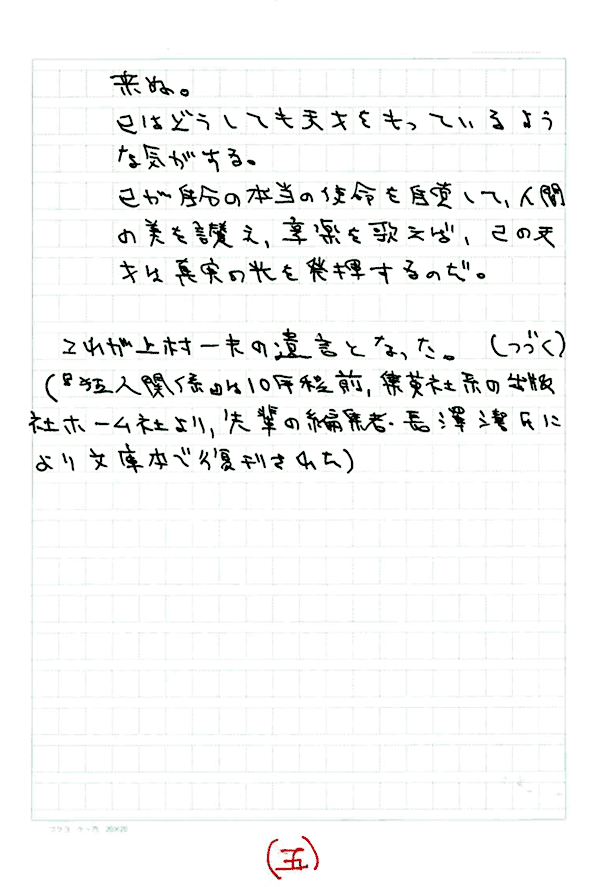 来ぬ。
己はどうしても天才をもっているよう
な気がする。
己が自分の本当の使命を自覚して、人間
の美を讃え、享楽を歌えば、己の天
才は真実の光を発揮するのだ。
これが上村一夫の遺言となった。（つづく）
（『狂人関係』は10年程前、集英社系の出版
社ホーム社より、先輩の編集者・長澤潔氏に
より文庫本で復刊された）
コクヨ ケ-75 20×20
（五）